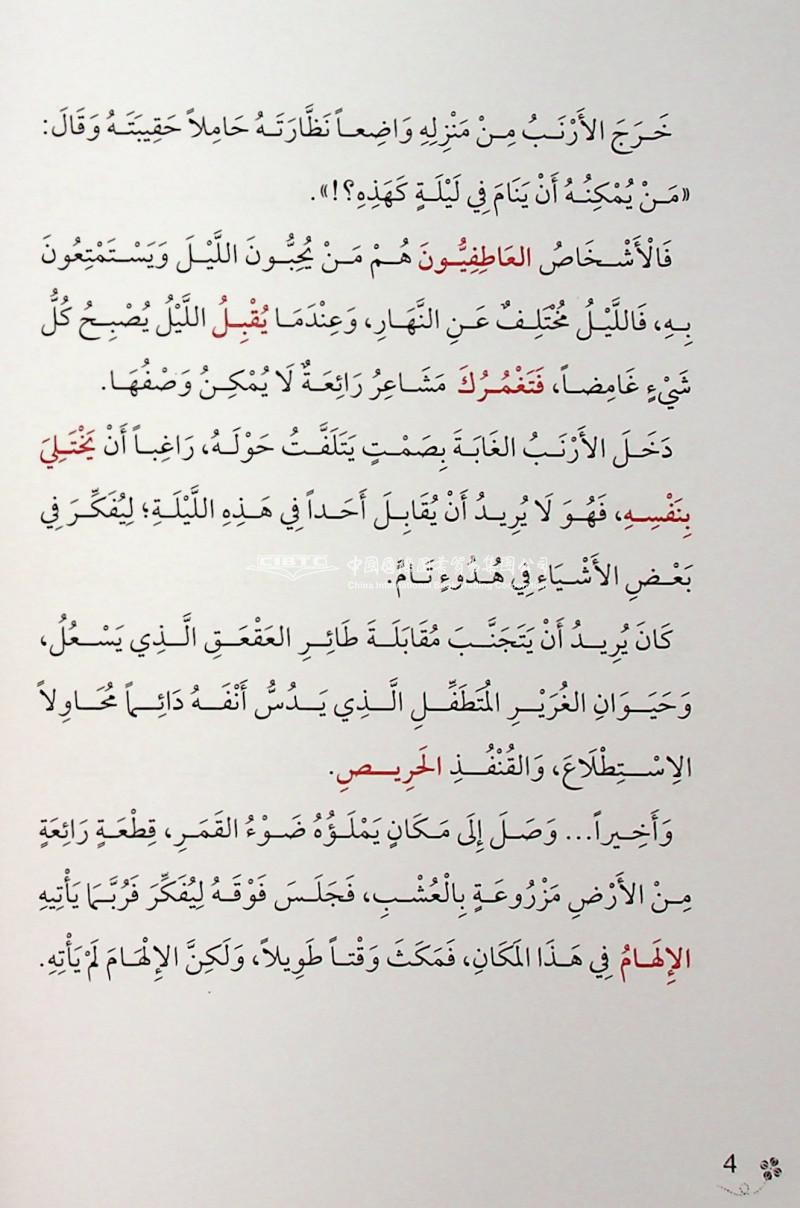 خَرَجَ الأَرْنَبُ مِنْ مَنْزِلِهِ وَاضِعاً نَظَّارَتَهُ حَامِلاً حَقِيبَتَهُ وَقَالَ:
«مَنْ يُمْكِنُهُ أَنْ يَنَامَ فِي لَيْلَةٍ كَهَذِهِ؟!».
فَالْأَشْخَاصُ العَاطِفِيُّونَ هُمْ مَنْ يُحِبُّونَ اللَّيْلَ وَيَسْتَمْتِعُونَ
بِهِ، فَاللَّيْلُ مُخْتَلِفٌ عَنِ النَّهَارِ، وَعِنْدَمَا يُقْبِلُ اللَّيْلُ يُصْبِحُ كُلُّ
شَيْءٍ غَامِضاً، فَتَغْمُرُكَ مَشَاعِرُ رَائِعَةٌ لَا يُمْكِنُ وَصْفُهَا.
دَخَلَ الأَرْنَبُ الغَابَةَ بِصَمْتٍ يَتَلَفَّتُ حَوْلَهُ، رَاغِباً أَنْ يَخْتَلِيَ
بِنَفْسِهِ، فَهُوَ لَا يُرِيدُ أَنْ يُقَابِلَ أَحَداً فِي هَذِهِ اللَّيْلَةِ؛ لِيُفَكِّرَ فِي
بَعْضِ الأَشْيَاءِ فِي هُدُوءٍ تَامٍّ.
中国国际图书贸易集团公司
CIBTC
China International Book Trading Corporation
كَانَ يُرِيدُ أَنْ يَتَجَنَّبَ مُقَابَلَةَ طَائِرِ العَقْعَقِ الَّذِي يَسْعُلُ،
وَحَيَوَانِ الغُرَيْرِ المُتَطَفِّلِ الَّذِي يَدُسُّ أَنْفَهُ دَائِماً مُحَاوِلاً
الِاسْتِطْلَاعَ، وَالقُنْفُذِ الحَرِيصِ.
وَأَخِيراً... وَصَلَ إِلَى مَكَانٍ يَمْلَؤُهُ ضَوْءُ القَمَرِ، قِطْعَةٍ رَائِعَةٍ
مِنْ الأَرْضِ مَزْرُوعَةٍ بِالْعُشْبِ، فَجَلَسَ فَوْقَهُ لِيُفَكِّرَ فَرُبَّمَا يَأْتِيهِ
الإِلهَامُ فِي هَذَا المَكَانِ، فَمَكَثَ وَقْتاً طَوِيلاً، وَلَكِنَّ الإِلْهَامَ لَمْ يَأْتِهِ.
4